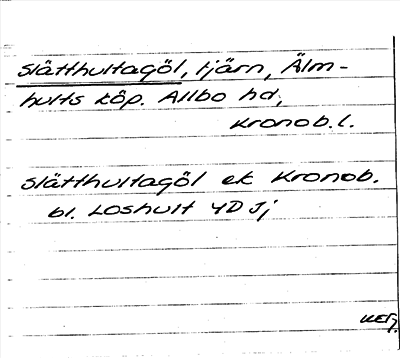 Slätthultagöl, tjärn, Älm-
hults köp. Allbo hd,
Kronob. l.
Slätthultagöl ek Kronob.
bl. Loshult 4D Sj